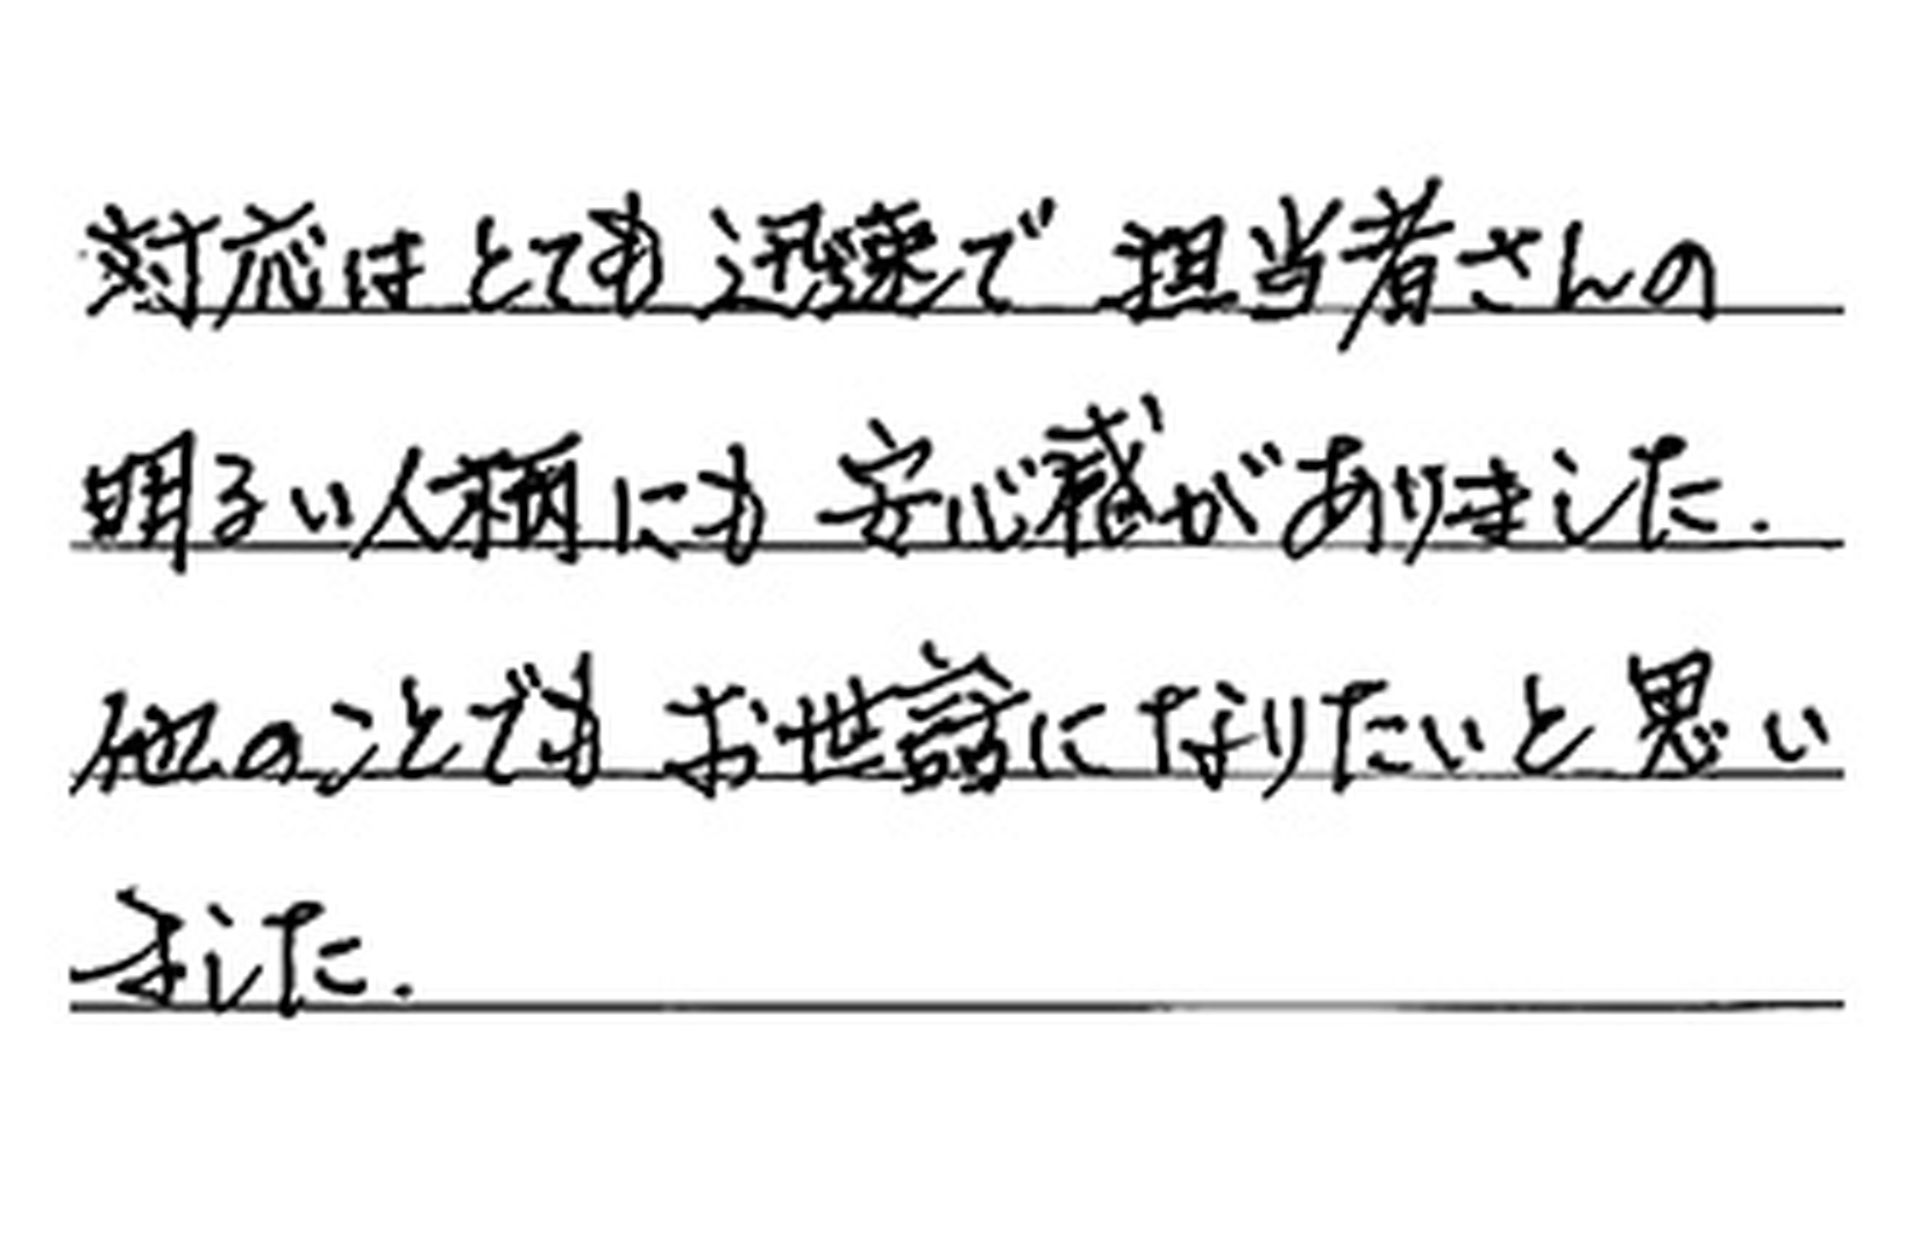 対応はとても迅速で 担当者さんの
明るい人柄にも 安心感がありました.
他のことでも お世話になりたいと思い
ました.